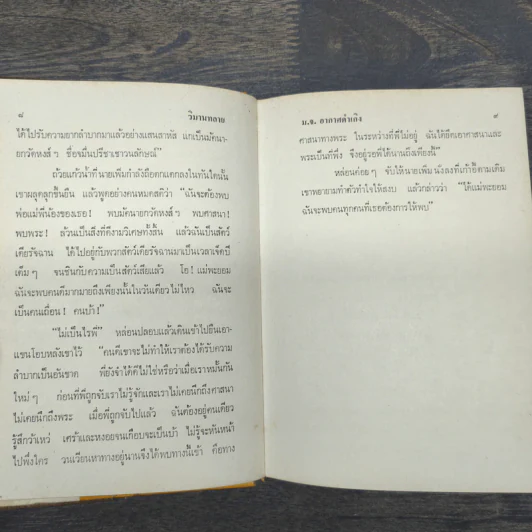 ๘ วิมานทลาย
ได้ไปรับความยากลำบากมาแล้วอย่างแสนสาหัส แกเป็นมัคนา-
ยกวัดหงส์ฯ ชื่อหมื่นปรีชาเชาวนลักษณ์"
ถ้วยแก้วน้ำที่นายเพิ่มกำลังถือตกแตกลงในทันใดนั้น
เขาผลุดลุกขึ้นยืน แล้วพูดอย่างคนหมดสติว่า "ฉันจะต้องพบ
พ่อแม่พี่น้องของเธอ! พบมัคนายกวัดหงส์ฯ พบศาสนา!
พบพระ! ล้วนเป็นสิ่งที่ดีงามวิเศษทั้งสิ้น แล้วฉันเป็นสัตว์
เดียรัจฉาน ได้ไปอยู่กับพวกสัตว์เดียรัจฉานมาเป็นเวลาเจ็ดปี
เต็มๆ จนชินกับความเป็นสัตว์เสียแล้ว โอ! แม่พะยอม
ฉันจะพบคนดีมากมายถึงเพียงนั้นในวันเดียวไม่ไหว ฉันจะ
เป็นคนเถื่อน! คนบ้า!"
"ไม่เป็นไรพี่" หล่อนปลอบแล้วเดินเข้าไปยืนเอา-
แขนโอบหลังเขาไว้ "คนดีเขาจะไม่ทำให้เราต้องได้รับความ
ลำบากเป็นอันขาด พี่ยังจำได้ดีไม่ใช่หรือว่าเมื่อเราหมั้นกัน
ใหม่ๆ ก่อนที่พี่ถูกจับเราไม่รู้จักและเราไม่เคยนึกถึงศาสนา
ไม่เคยนึกถึงพระ เมื่อพี่ถูกจับไปแล้ว ฉันต้องอยู่คนเดียว
รู้สึกว้าเหว่ เศร้าและหงอยจนเกือบจะเป็นบ้า ไม่รู้จะหันหน้า
ไปพึ่งใคร วนเวียนหาทางอยู่นานจึงได้พบทางนี้เข้า คือทาง
ม.จ. อากาศดำเกิง ๙
ศาสนาทางพระ ในระหว่างที่พี่ไม่อยู่ ฉันได้ยึดเอาศาสนาและ
พระเป็นที่พึ่ง จึงอยู่รอพี่ได้นานถึงเพียงนี้"
หล่อนค่อยๆ จับให้นายเพิ่มนั่งลงที่เก้าอี้ตามเดิม
เขาพยายามทำตัวทำใจให้สงบ แล้วกล่าวว่า "ได้แม่พะยอม
ฉันจะพบคนทุกคนที่เธอต้องการให้พบ"